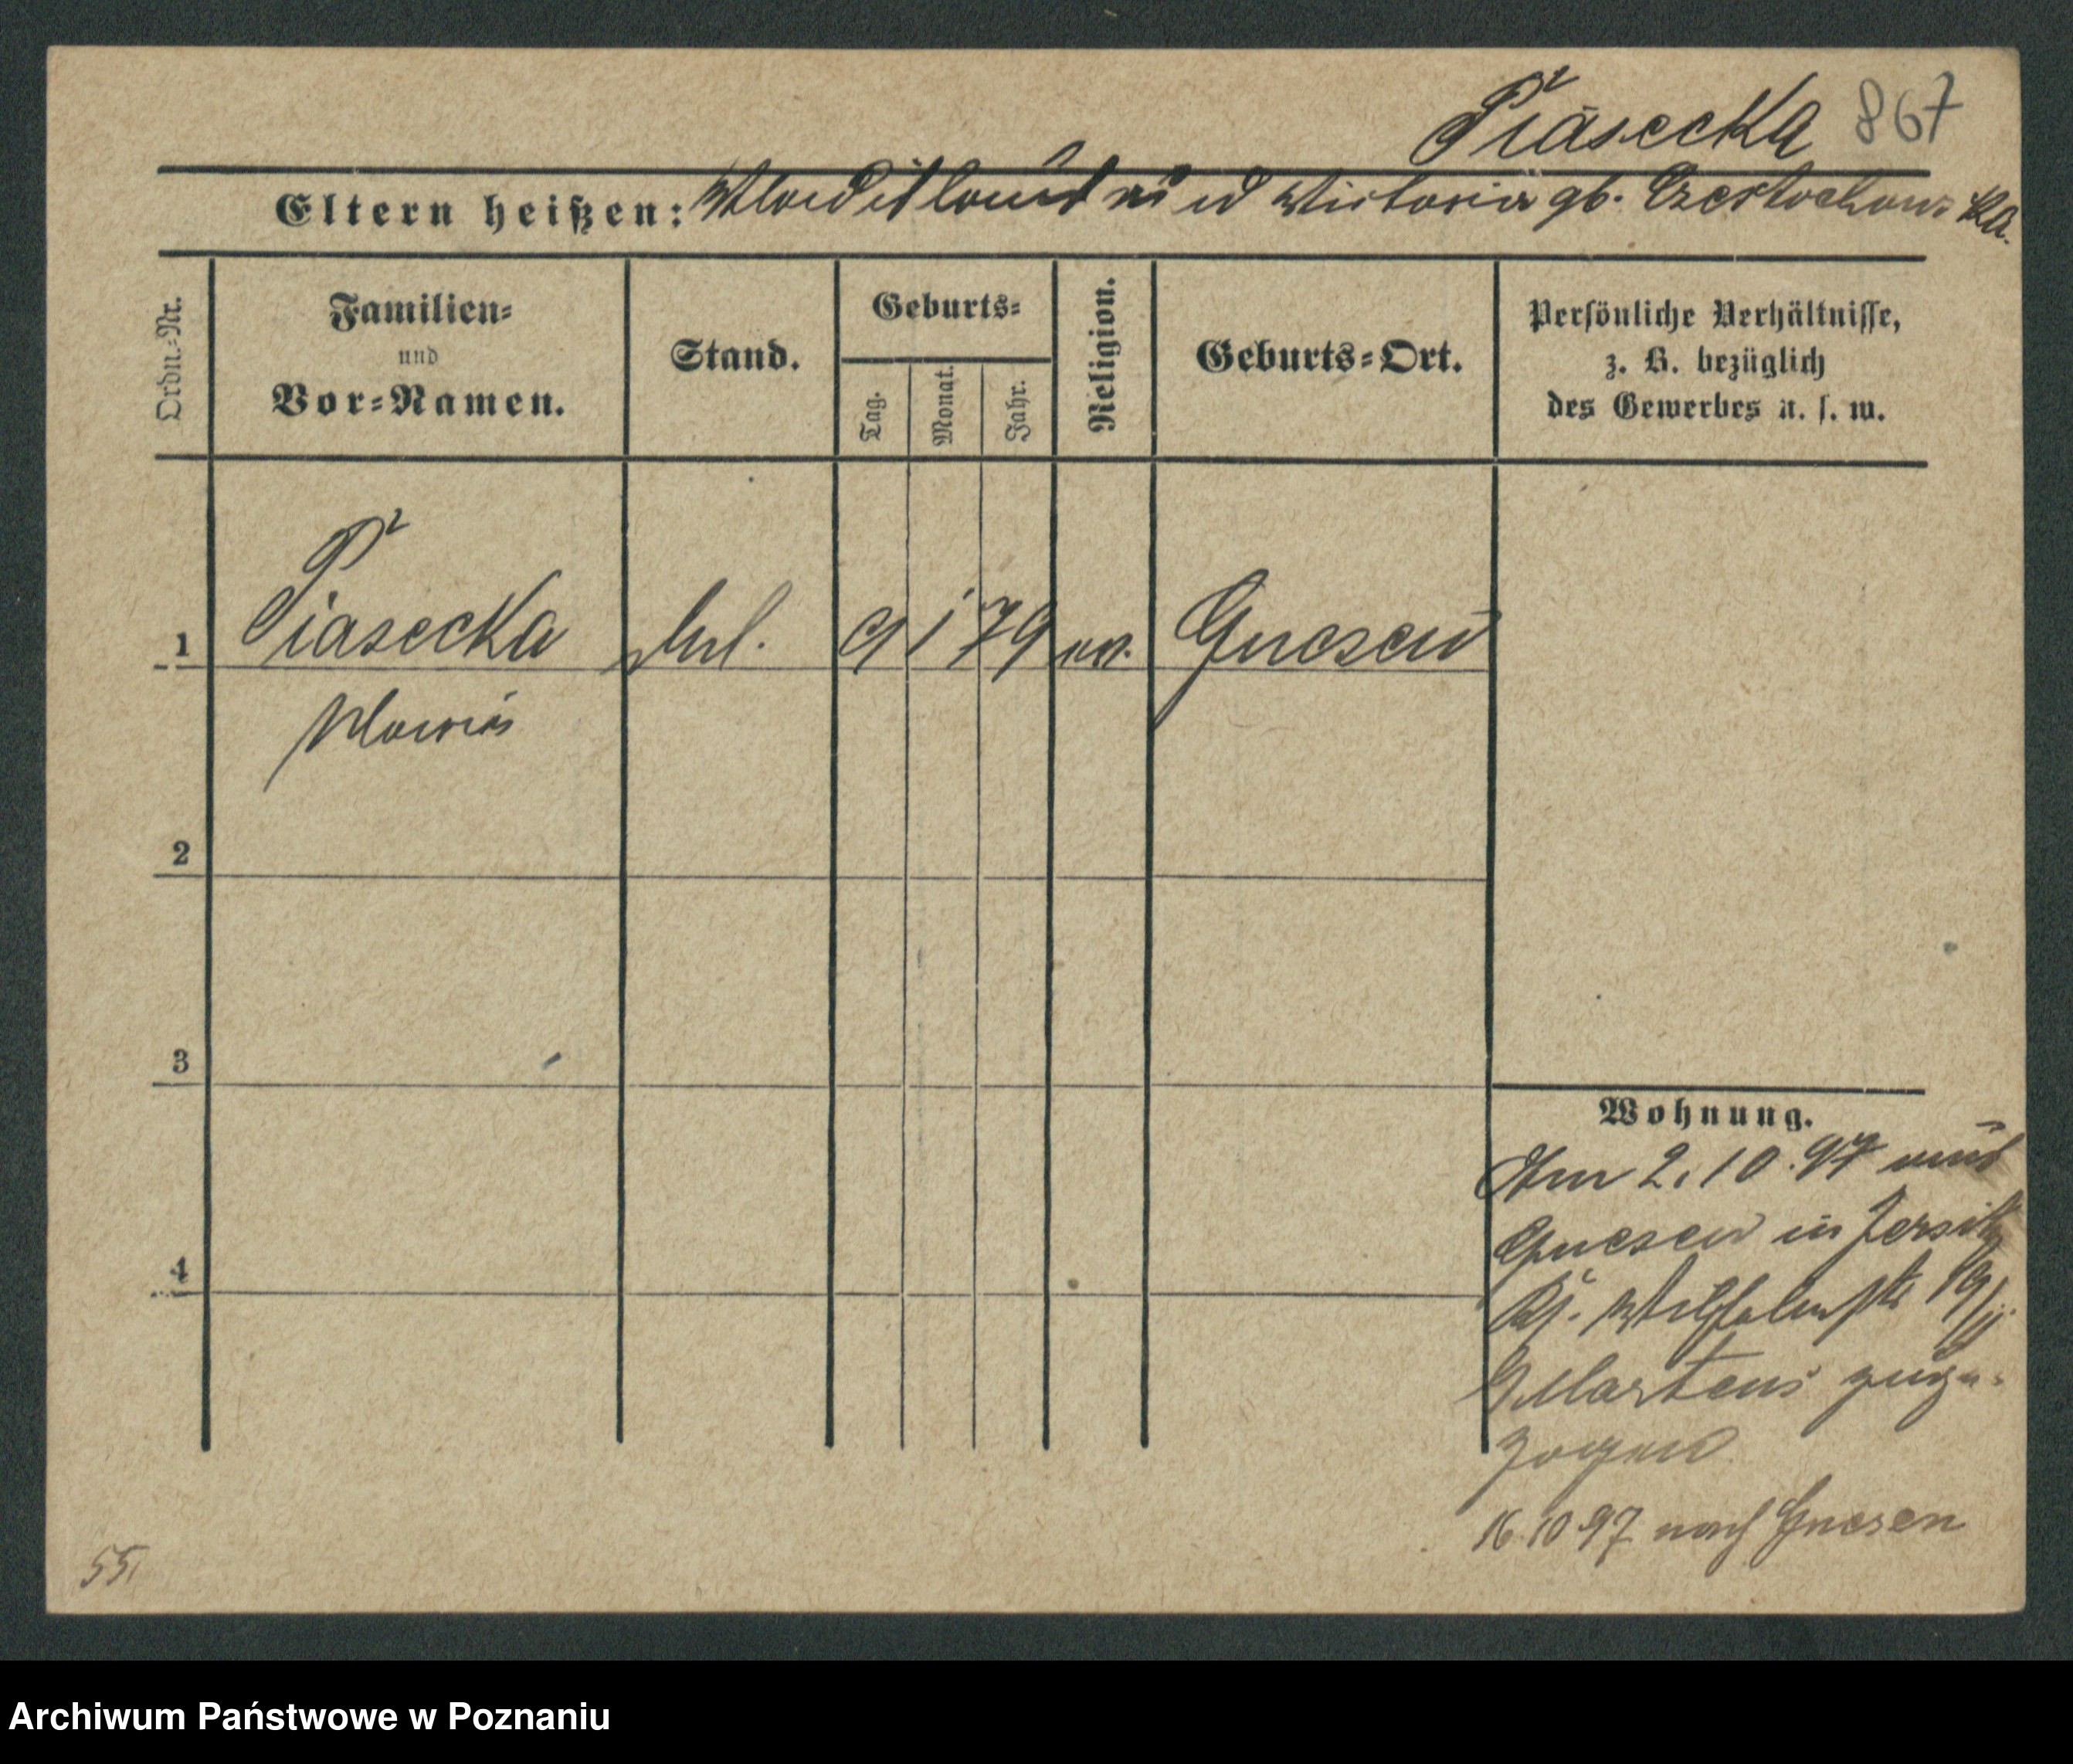 Piasecka 867
Eltern heißen: Wladislaus und Victoria gb. Czestochowska.
Ordn.-Nr.
Familien-
und
Vor-Namen.
Stand.
Geburts-
Tag.
Monat.
Jahr.
Religion.
Geburts-Ort.
Persönliche Verhältnisse,
z. B. bezüglich
des Gewerbes u. s. w.
1 Piasecka 9 1 79 Gnesen
Maria
2
3
4
Wohnung.
Am 2.10.97 aus
Gnesen in Jersitz
Ks. Wilhelmstr 19/II
Martens zuge-
zogen
16.10 97 nach Gnesen
55
Archiwum Państwowe w Poznaniu